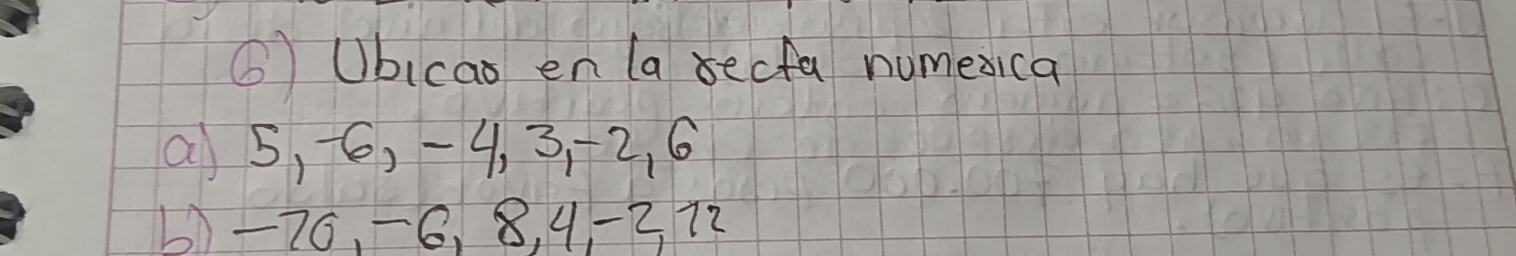 6) Ubicar en la recta numerica
a) 5, -6, -4, 3, -2, 6
b) -10, -6, 8, 4, -2, 12